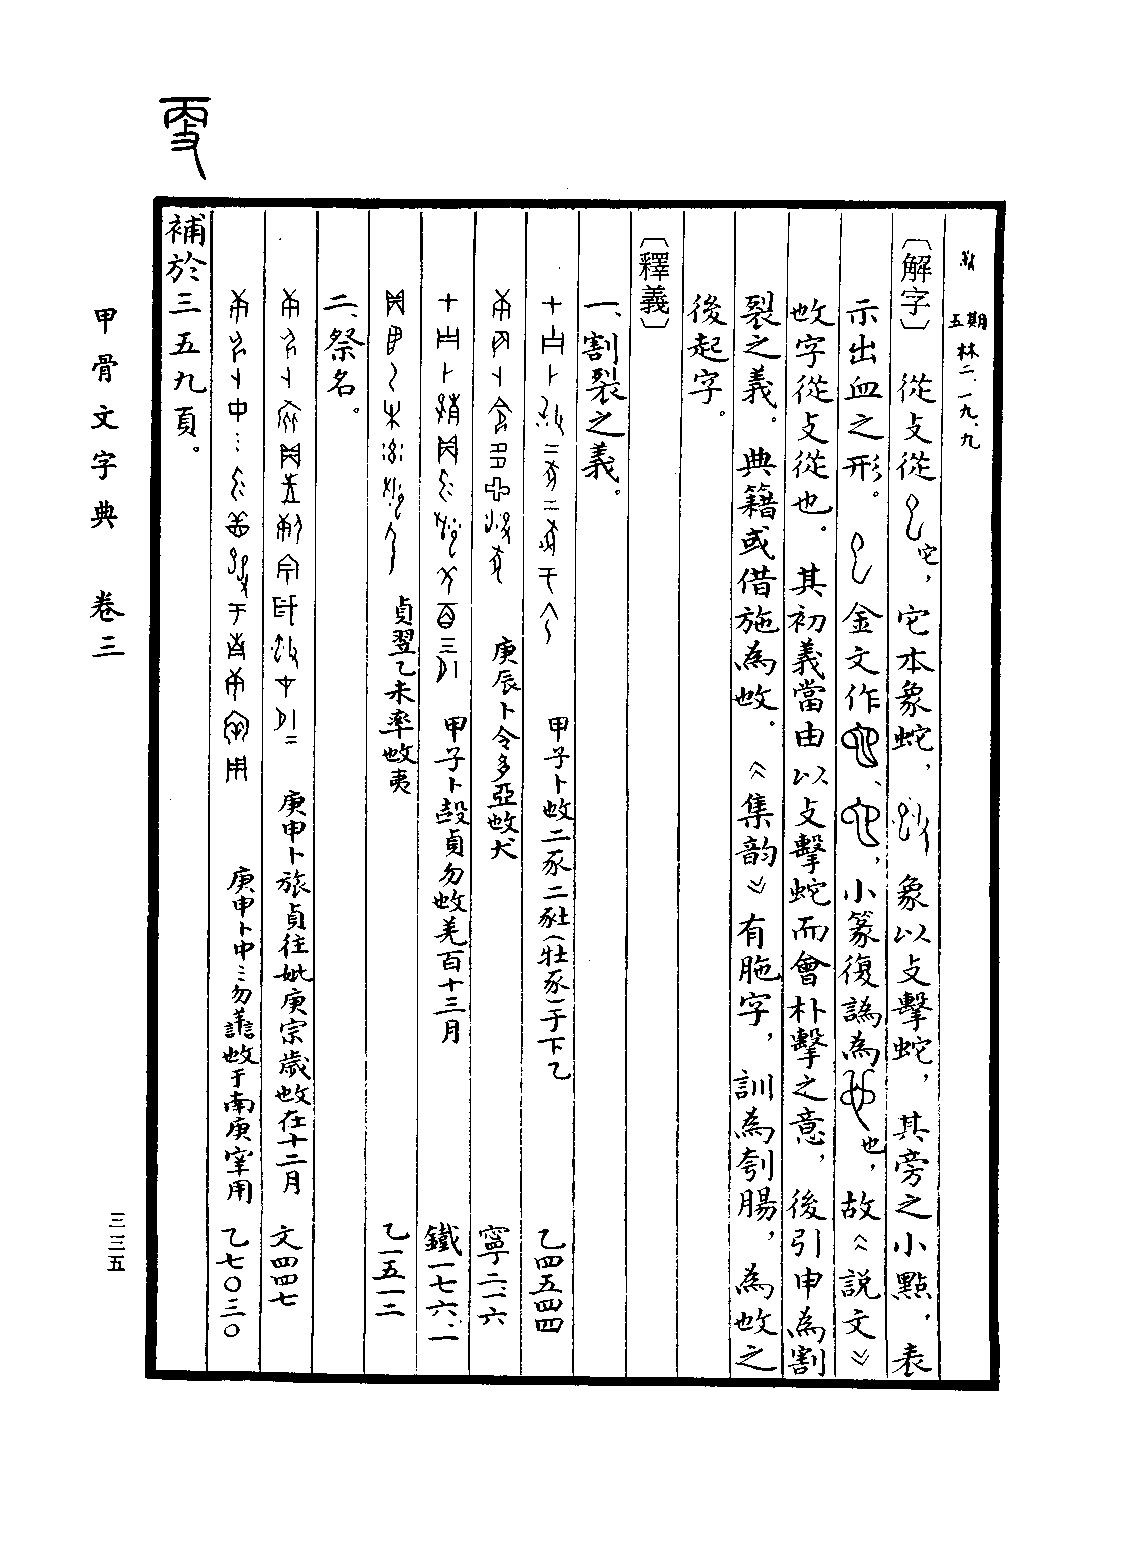 五期 林二.一九.九
〔解字〕從攴從它，它本象蛇，象以攴擊蛇，其旁之小點，表
示出血之形。金文作、，小篆復譌為也，故《說文》
㪃字從攴從也。其初義當由以攴擊蛇而會朴擊之意，後引申為割
裂之義。典籍或借施為㪃。《集韵》有胣字，訓為刳腸，為㪃之
後起字。
〔釋義〕
一、割裂之義。
甲子卜㪃二豕二（牡豕）于下乙 乙四五四四
庚辰卜令多亞㪃犬 寧二.一六
甲子卜㱿貞勿㪃羌百十三月 鐵一七六.一
貞翌乙未率㪃夷 乙一五一二
二、祭名。
庚申卜旅貞往妣庚宗歲㪃在十二月 文四四七
庚申卜中…勿㪃于南庚宰用 乙七〇三〇
補於三五九頁。
甲骨文字典 卷三
三三五